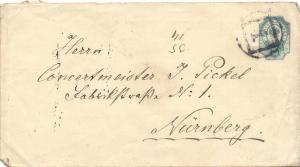 41
Herrn
Concertmeister J. Pickel
Fabrikstraße No: 1.
Nürnberg.